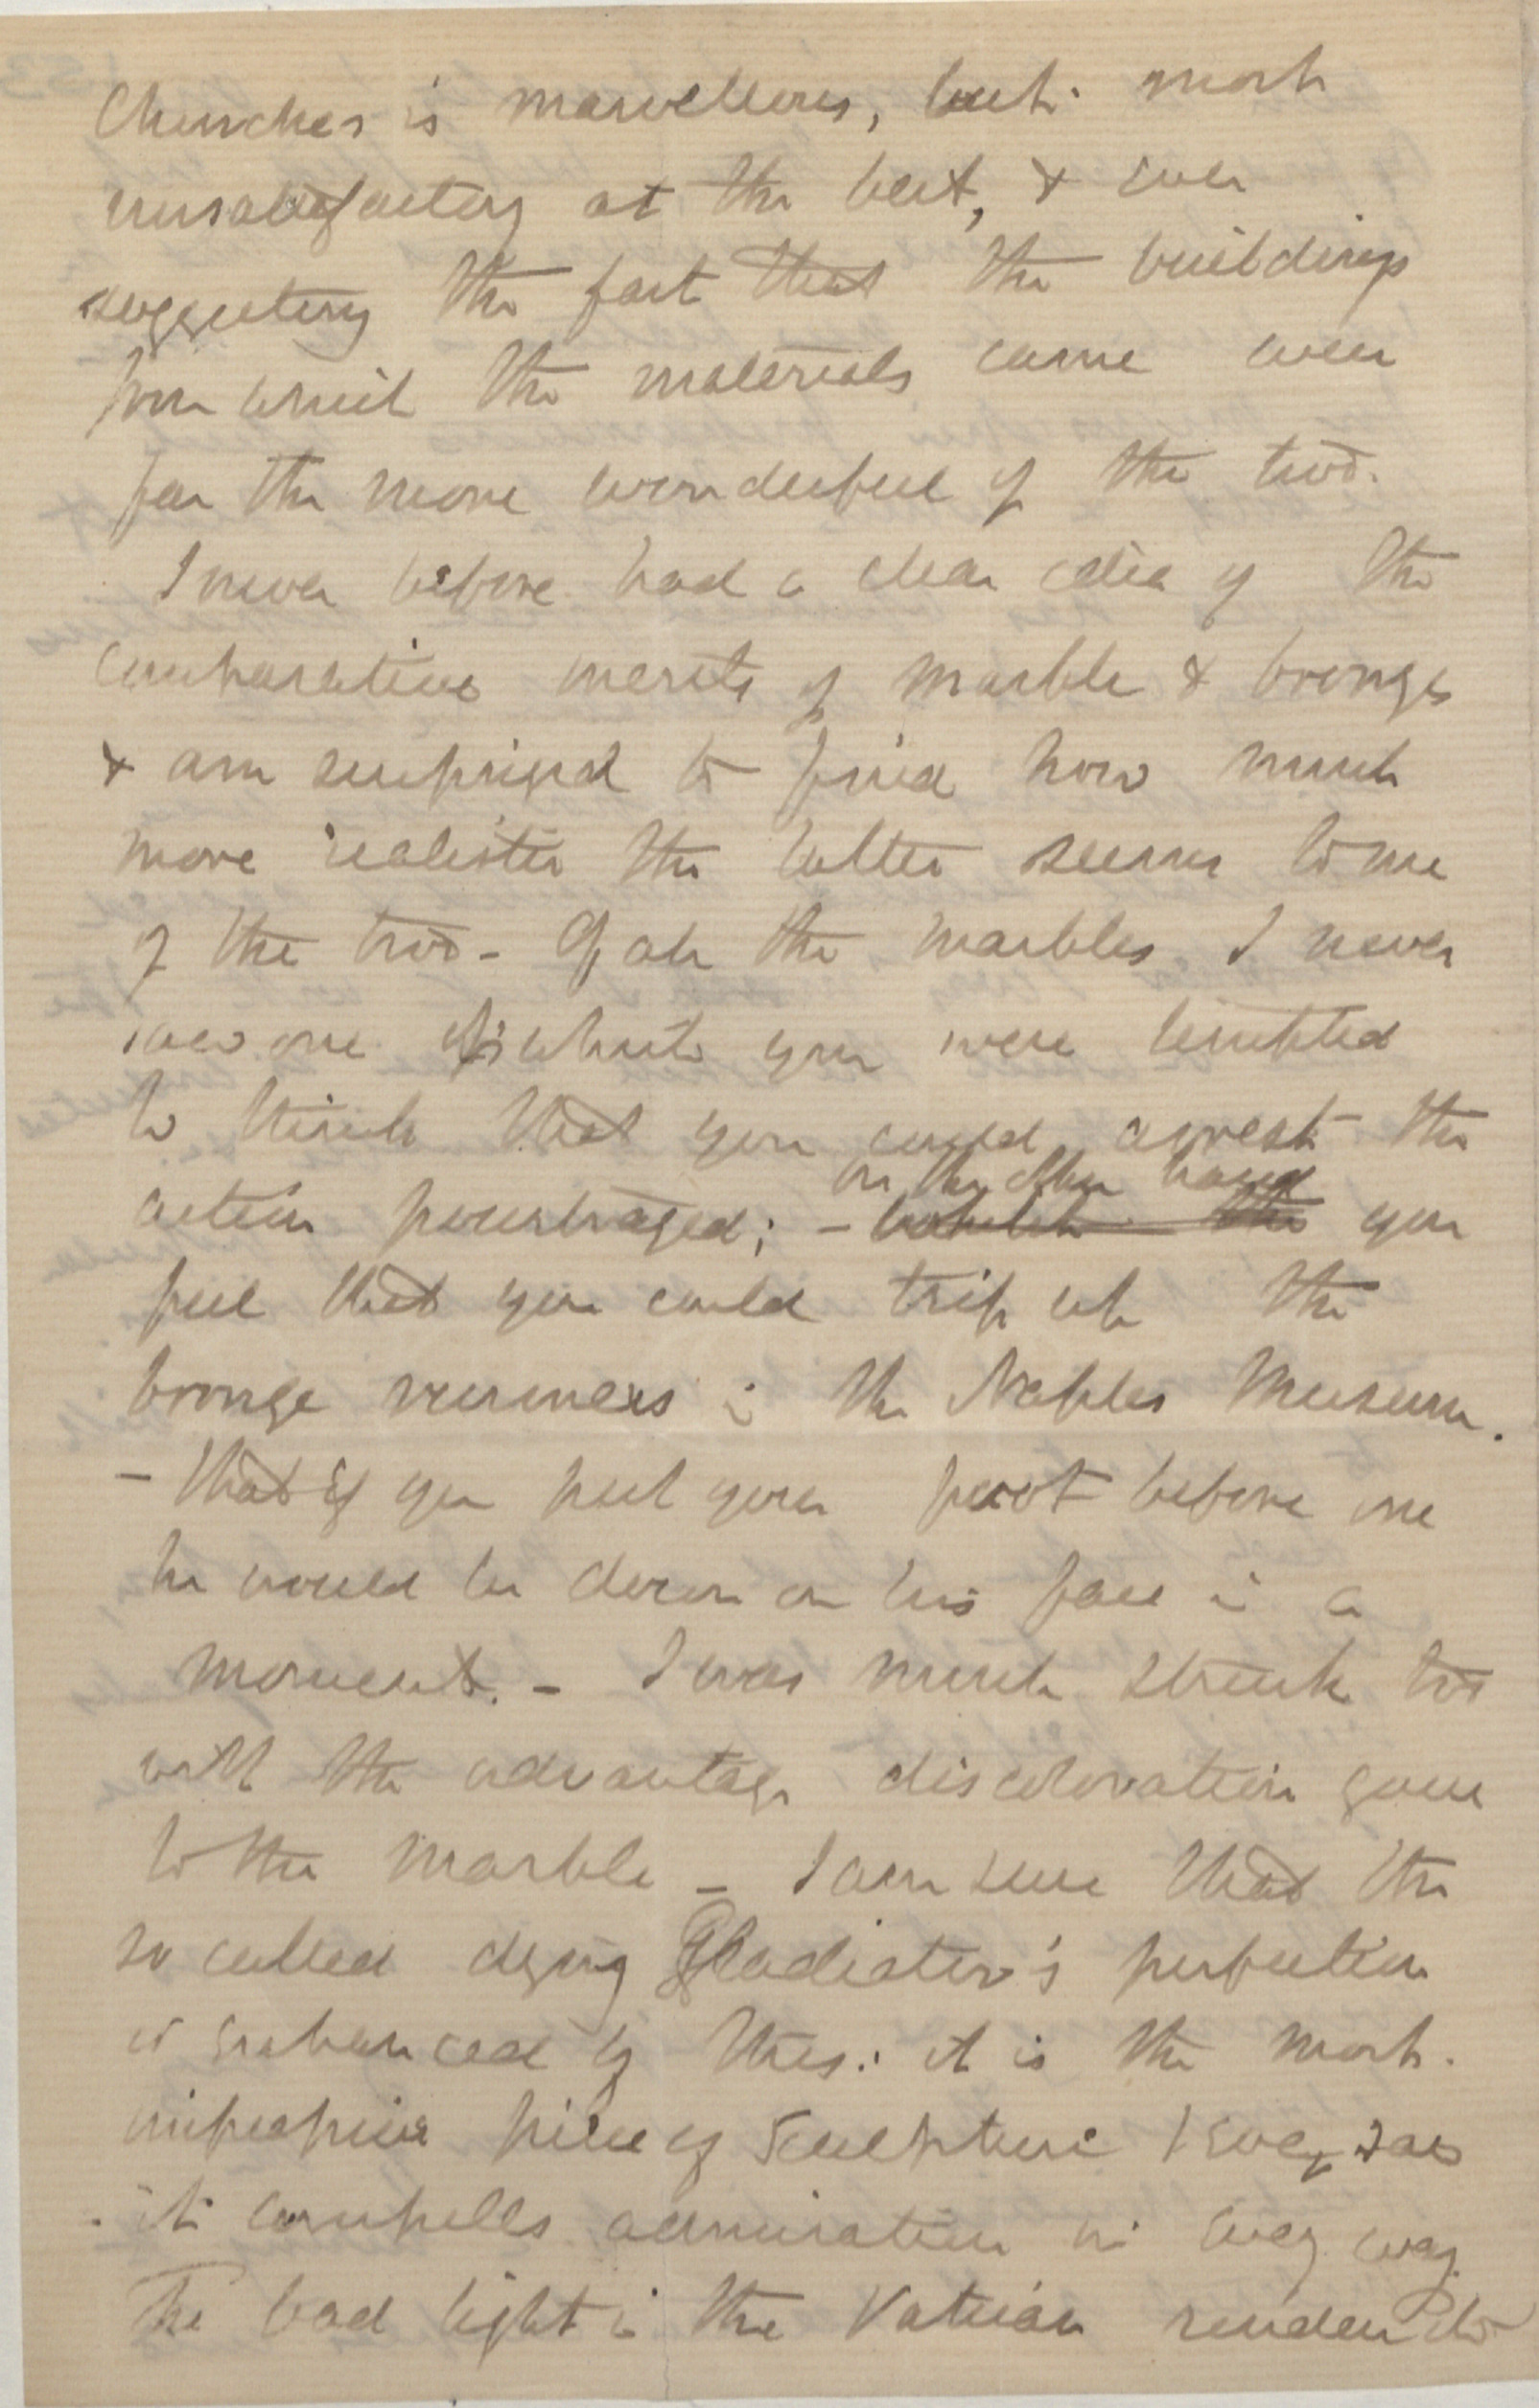 Churches is marvellous, but most
unsatisfactory at the best, & ever
suggesting the fact that the buildings
from which the materials came were
far the more wonderful of the two.
I never before had a clear idea of the
comparative merits of marble & bronze
& am surprised to find how much
more realistic the latter seems to me
of the two - Of all the marbles I never
saw one in which you were tempted
to think that you could arrest the
action pourtrayed; -
on the other hand
you
feel that you could trip up the
bronze runners in the Naples Museum.
- that if you put your foot before one
he would be down on his face in a
moment. - I was much struck too
with the advantage discoloration gives
to the marble - I am sure that the
so called dying Gladiator's perfection
is enhanced by this: it is the most
impressive piece of Sculpture I ever saw
it compells admiration in every way.
The bad light in the Vatican renders